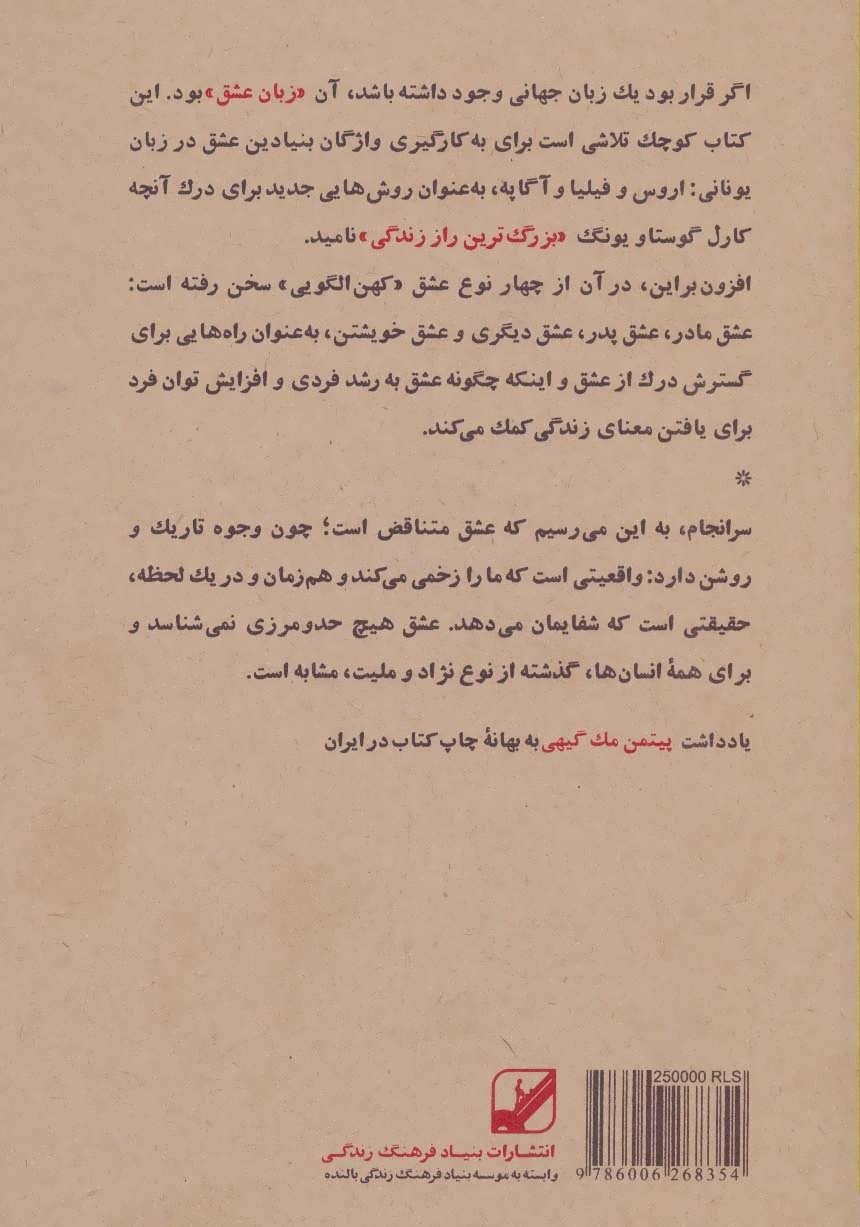 اگر قرار بود یك زبان جهانی وجود داشته باشد، آن «زبان عشق» بود. این
کتاب کوچك تلاشی است برای به‌کارگیری واژگان بنیادین عشق در زبان
یونانی: اروس و فیلیا و آگاپه، به‌عنوان روش‌هایی جدید برای درك آنچه
کارل گوستاو یونگ «بزرگ‌ترین راز زندگی» نامید.
افزون‌براین، در آن از چهار نوع عشق «کهن‌الگویی» سخن رفته است:
عشق مادر، عشق پدر، عشق دیگری و عشق خویشتن، به‌عنوان راه‌هایی برای
گسترش درك از عشق و اینکه چگونه عشق به رشد فردی و افزایش توان فرد
برای یافتن معنای زندگی کمك می‌کند.
*
سرانجام، به این می‌رسیم که عشق متناقض است؛ چون وجوه تاریك و
روشن دارد: واقعیتی است که ما را زخمی می‌کند و هم‌زمان و در یك لحظه،
حقیقتی است که شفایمان می‌دهد. عشق هیچ حدومرزی نمی‌شناسد و
برای همهٔ انسان‌ها، گذشته از نوع نژاد و ملیت، مشابه است.
یادداشت پیتمن مك گیهی به بهانهٔ چاپ کتاب در ایران
250000 RLS
انتشارات بنیاد فرهنگ زندگی
وابسته به موسسه بنیاد فرهنگ زندگی بالنده
9 786006 268354